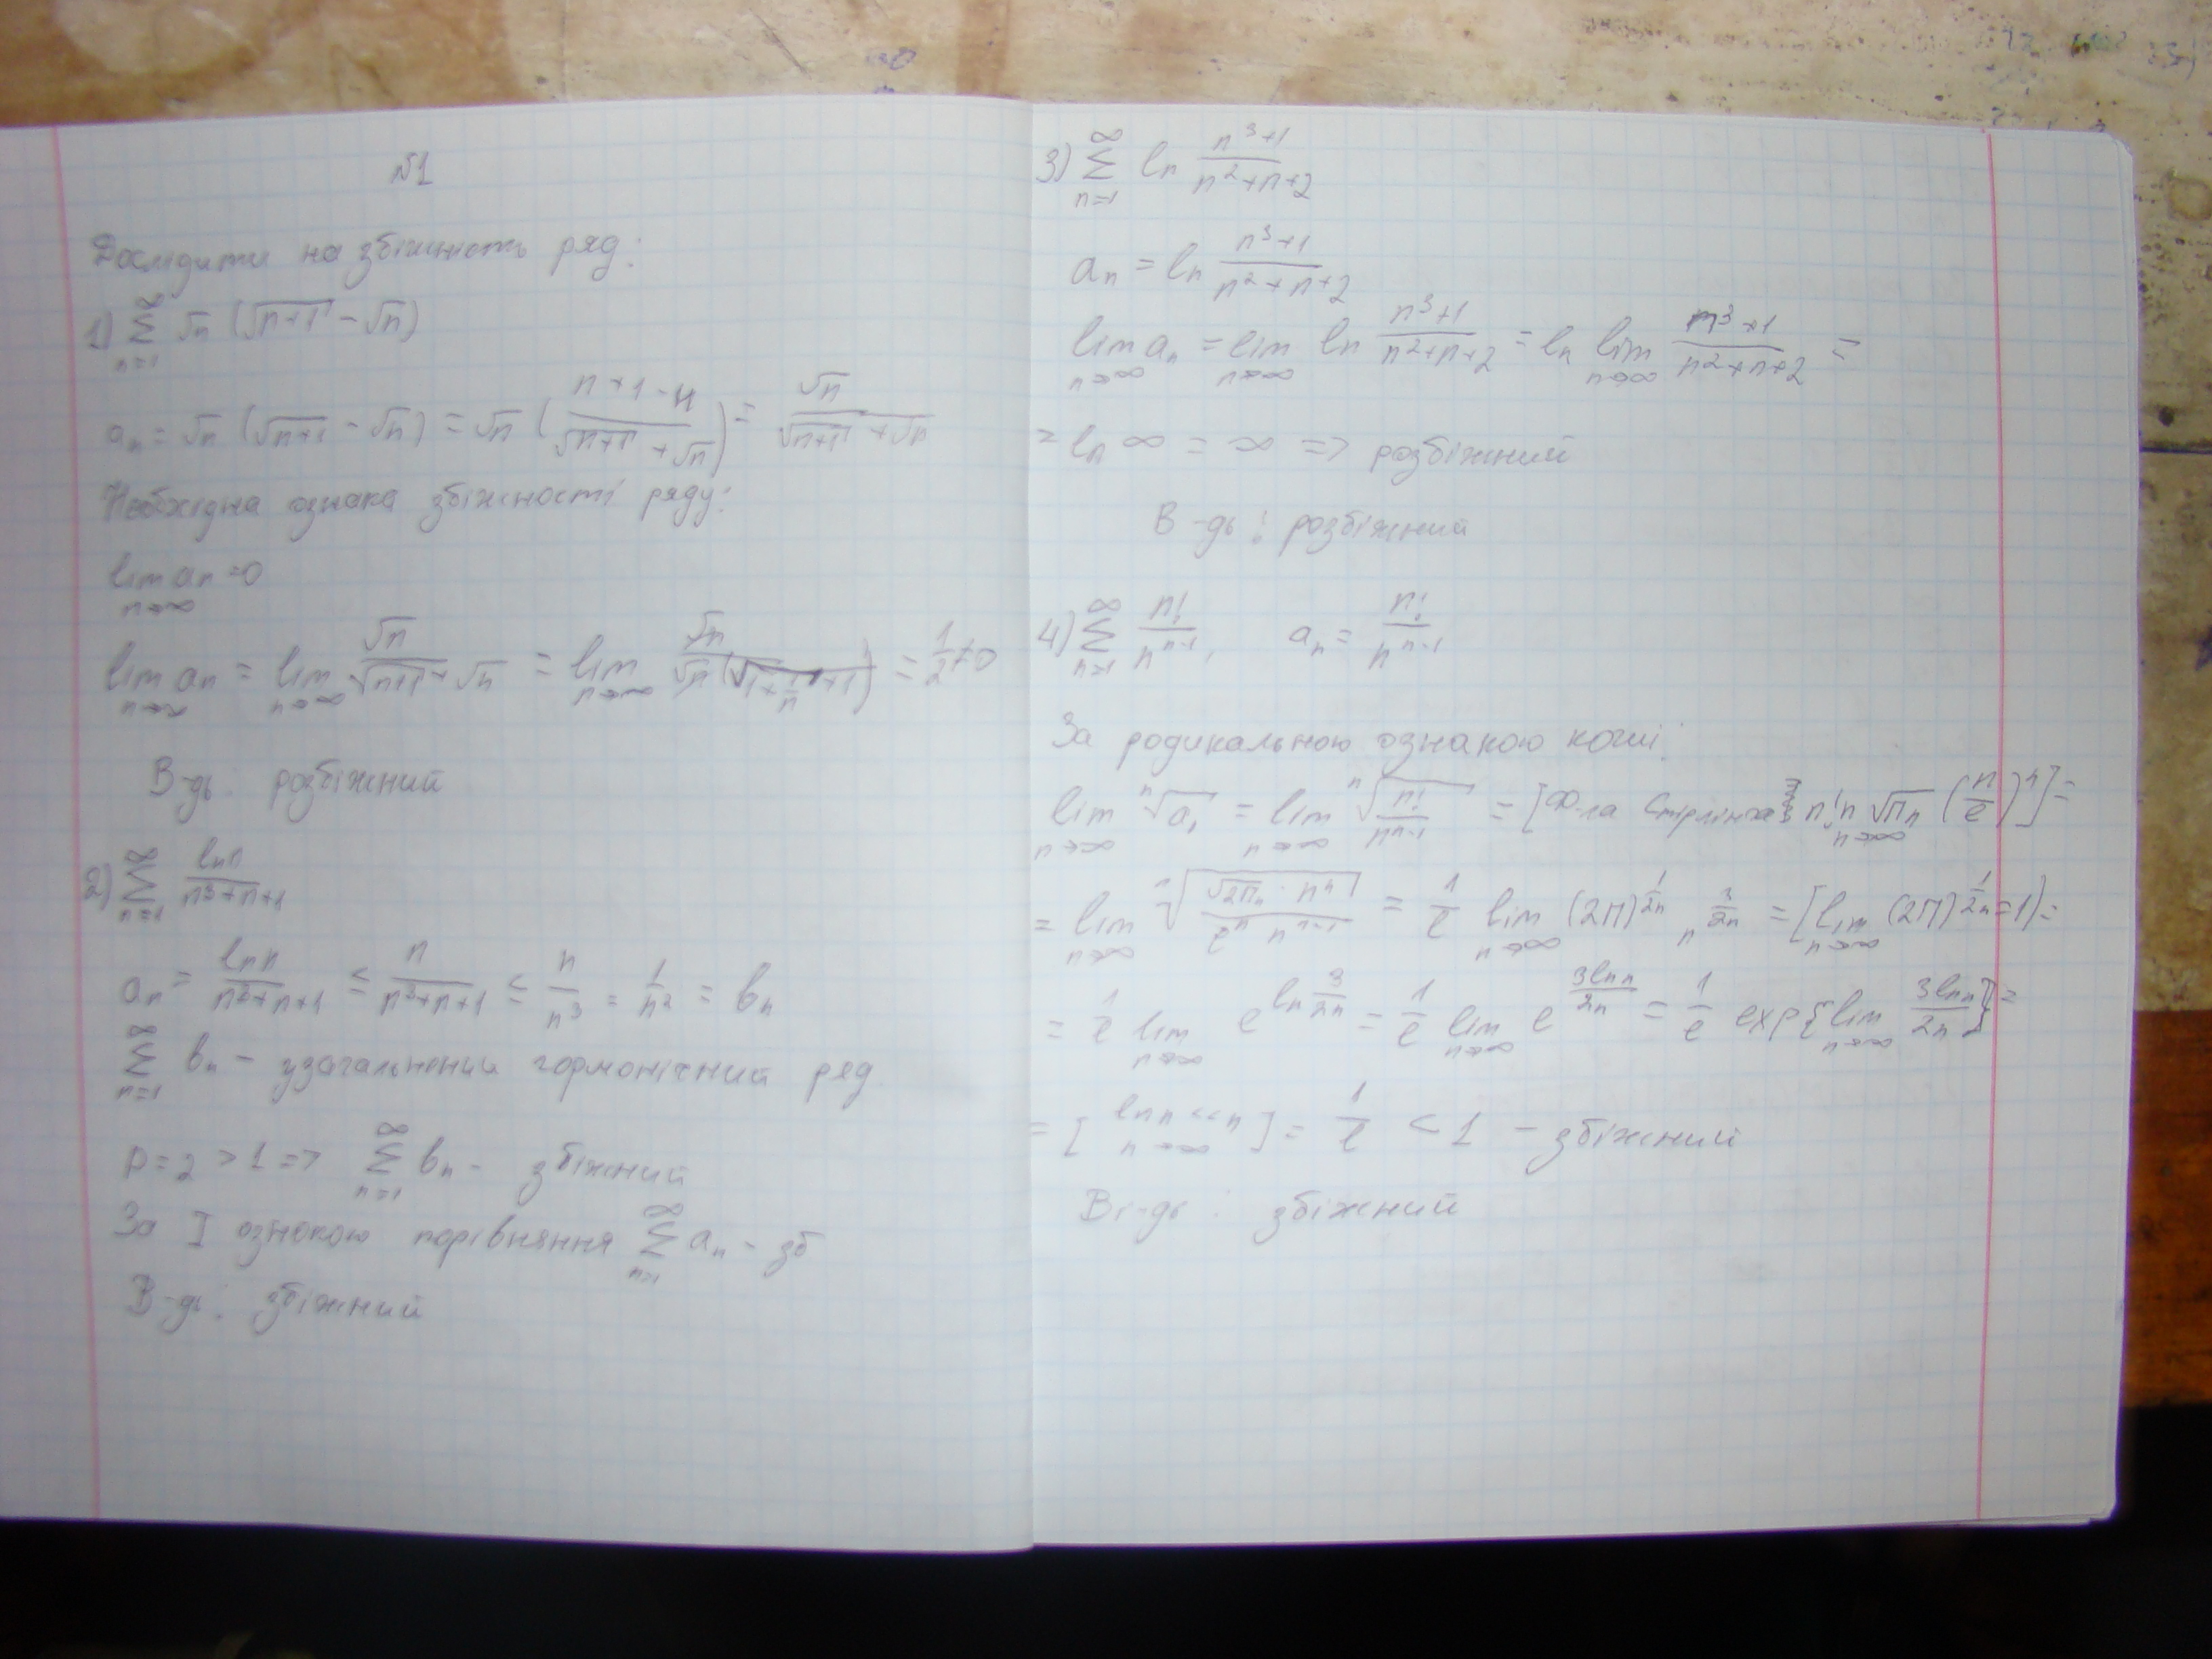 №1
Дослідити на збіжність ряд:
1) ∑_{n=1}^{∞} √n (√(n+1) - √n)
a_n = √n (√(n+1) - √n) = √n ((n+1-n)/(√(n+1) + √n)) = √n/(√(n+1) + √n)
Необхідна ознака збіжності ряду:
lim_{n→∞} a_n = 0
lim_{n→∞} a_n = lim_{n→∞} √n/(√(n+1) + √n) = lim_{n→∞} √n/(√n(√(1+1/n) + 1)) = 1/2 ≠ 0
В-дь: розбіжний
2) ∑_{n=1}^{∞} ln n/(n³+n+1)
a_n = ln n/(n³+n+1) ≤ n/(n³+n+1) ≤ n/n³ = 1/n² = b_n
∑_{n=1}^{∞} b_n - узагальнений гармонічний ряд
p = 2 > 1 => ∑_{n=1}^{∞} b_n - збіжний
За I ознакою порівняння ∑_{n=1}^{∞} a_n - зб
В-дь: збіжний
3) ∑_{n=1}^{∞} ln (n³+1)/(n²+n+2)
a_n = ln (n³+1)/(n²+n+2)
lim_{n→∞} a_n = lim_{n→∞} ln (n³+1)/(n²+n+2) = ln lim_{n→∞} (n³+1)/(n²+n+2) =
= ln ∞ = ∞ => розбіжний
В-дь: розбіжний
4) ∑_{n=1}^{∞} n!/n^{n-1}, a_n = n!/n^{n-1}
За радикальною ознакою коші:
lim_{n→∞} ⁿ√a_n = lim_{n→∞} ⁿ√(n!/n^{n-1}) = [Ф-ла Стірлінга n! ~_{n→∞} √(πn) (n/e)^n] =
= lim_{n→∞} ⁿ√(√(2πn) · n^n/(e^n n^{n-1})) = 1/e lim_{n→∞} (2π)^{1/2n} n^{3/2n} = [lim_{n→∞} (2π)^{1/2n} = 1] =
= 1/e lim_{n→∞} e^{ln 3/2n} = 1/e lim_{n→∞} e^{3ln n/2n} = 1/e exp{lim_{n→∞} 3ln n/2n} =
= [ln n << n, n→∞] = 1/e < 1 - збіжний
Ві-дь: збіжний